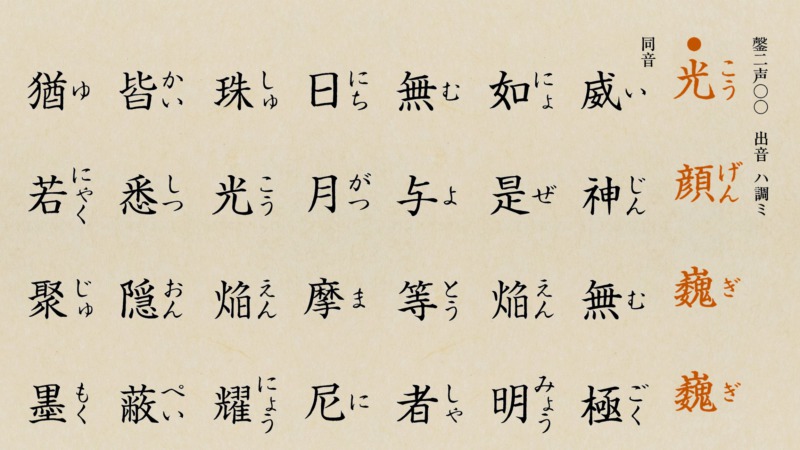 鏧二声〇〇 出音 ハ調ミ
●光顔巍巍
こうげんぎぎ
同音
威神無極
いじんむごく
如是焔明
にょぜえんみょう
無与等者
むよとうしゃ
日月摩尼
にちがつまに
珠光焔耀
しゅこうえんにょう
皆悉隠蔽
かいしつおんぺい
猶若聚墨
ゆにゃくじゅもく